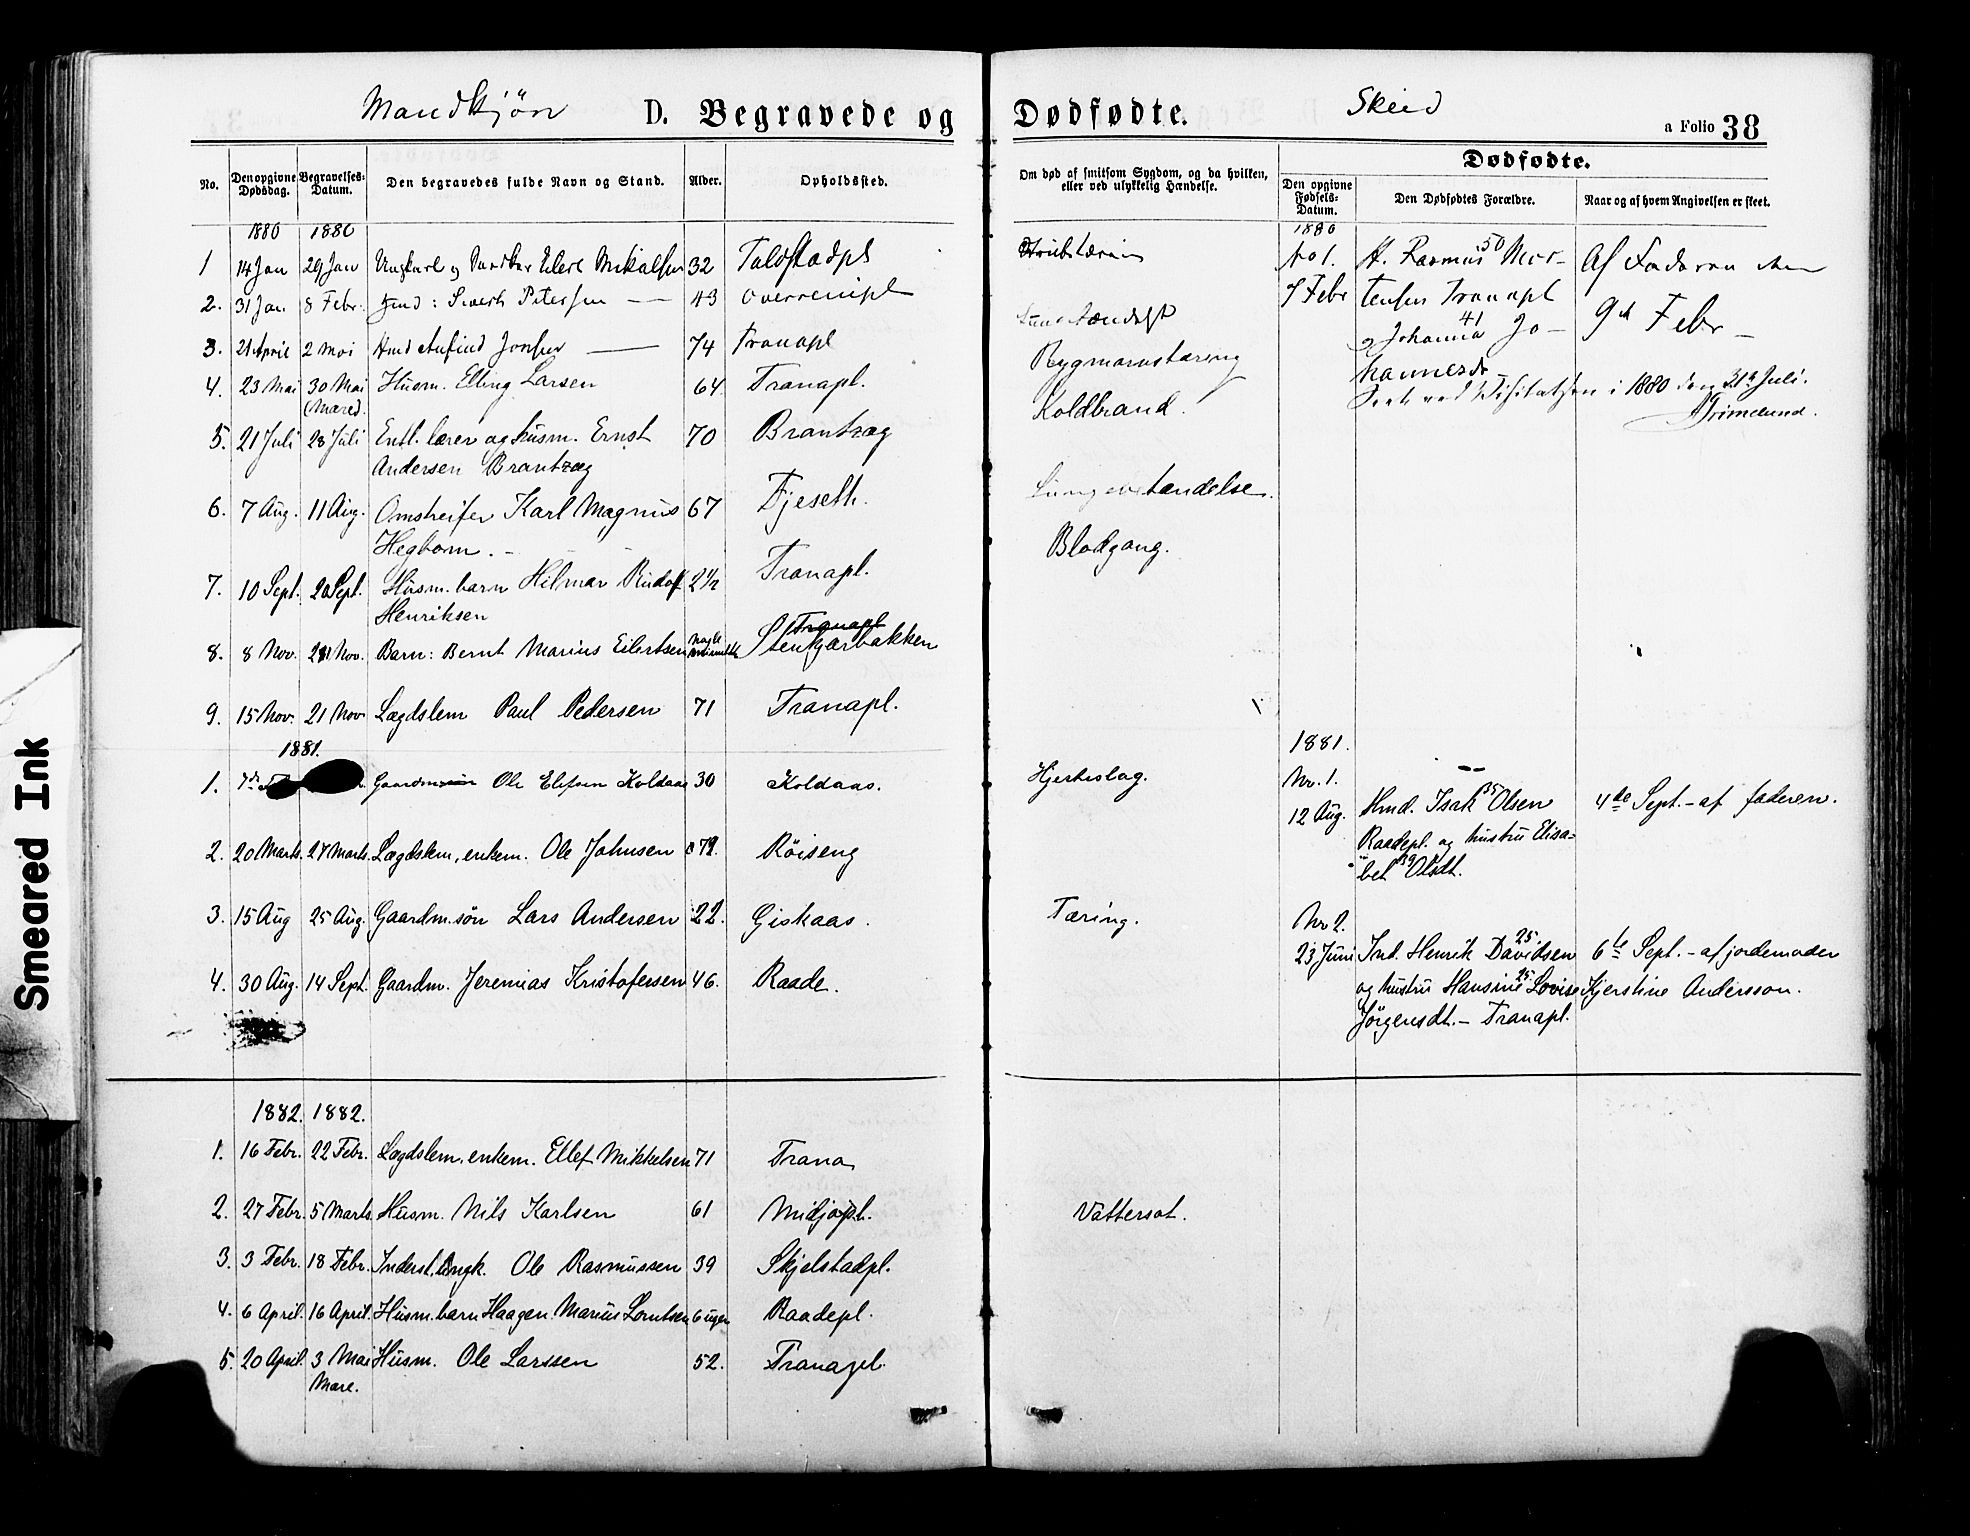 Mandkjøn D. Begravede og Dødfødte. Skeid a Folio 38
No. Den opgivne Dødsdag. Begravelses-Datum. Den begravedes fulde Navn og Stand. Alder. Opholdssted. Om død af smitsom Sygdom, og da hvilken, eller ved ulykkelig Hændelse.
Dødfødte.
Den opgivne Fødsels-Datum. Den Dødfødtes Forældre. Naar og af hvem Angivelsen er skeet.
1880 1880
1 14 Jan 29 Jan Ungkarl Eilert Mikalsen 32
2. 31 Jan. 8 Febr. Sivert Petersen 43
3. 21 April 2 Mai Jonsen 74 Tranapl
4. 23 Mai 30 Mai Husm. Elling Larsen 64 Tranapl. Rygmarvstæring
(Mære).
Koldbrand.
5. 21 Juli 28 Juli Entl. lærer og husm. Ernst 70 Brantzæg
Andersen Brantzæg
6. 7 Aug. 11 Aug. Omstreifer Karl Magnus 67 Fjeseth. Lungebetændelse.
Hegbom.
7. 10 Sept. 20 Sept. Husm. barn Hilmar Rudolf 2½ Tranapl. Blodgang.
Henriksen
Tranapl
8. 8 Nov. 21 Nov. Barn: Bernt Marius Eilertsen Stenkjærbakken
9. 15 Nov. 21 Nov Lægdslem Paul Pedersen 71 Tranapl.
1881.
1. Gaardm Ole Elefsen Koldaas 30 Koldaas. Hjerteslag.
2. 20 Marts. 27 Marts. Lægdslem, enkem. Ole Johnsen Røiseng
3. 15 Aug 25 Aug. Gaardm. søn Lars Andersen 22. Giskaas. Tæring.
4. 30 Aug. 14 Sept. Gaardm. Jeremias Kristofersen 46. Raade.
1882. 1882.
1. 16 Febr. 22 Febr. Lægdslem, enkem. Ellef Mikkelsen 71 Trana
2. 27 Febr. 5 Marts. Husm. Nils Karlsen 61 Midjopl. Vattersot.
3. 3 Febr. 18 Febr. Inderst. Ungk. Ole Rasmussen 39 Skjelstadpl.
4. 6 April. 16 April. Husm. barn Haagen Marius Lorntsen 6 uger Raadepl.
5. 20 April. 3 Mai Husm. Ole Larssen 52. Tranapl.
Mære.
1880
No 1. Rasmus 50 Mor- Af Faderen den
7 Febr tensen Tranapl 9d Febr
og Johanna 41 Jo-
hannesd
Seet ved Visitatsen i 1880 den 31te Juli.
Grimelund.
1881.
Nr. 1.
12 Aug. Hmd. Isak 35 Olsen 4de Sept. - af faderen.
Raadepl. og hustru Elisa-
bet 39 Olsdt.
Nr 2.
23 Juni Ind. Henrik Davidsen 25 6te Sept. - af jordemoder
og hustru Hansine 25 Lovise Kjerstine Andersson.
Jørgensdt. - Tranapl.
Smeared Ink